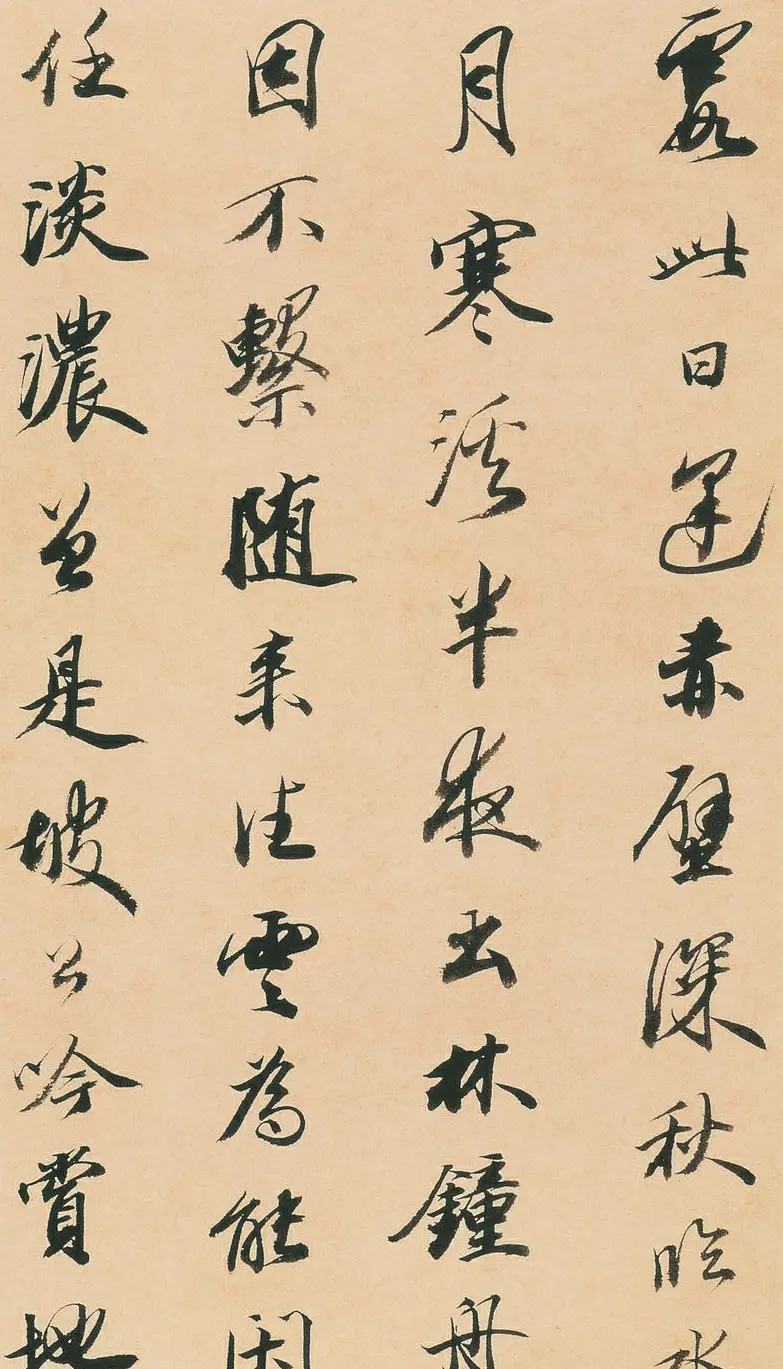 霞此日逢赤壁深秋臨水
月寒溪半夜出林鐘舟
因不繫随来往雲為能閑
任淡濃曾是坡公吟賞地